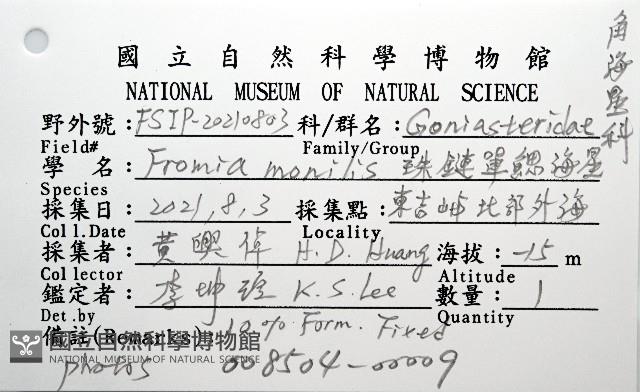 國立自然科學博物館
NATIONAL MUSEUM OF NATURAL SCIENCE
角海星科
野外號:FSIP-20210803 科/群名:Goniasteridae
Field# Family/Group
學 名:Fromia monilis 珠鏈單鰓海星
Species
採集日:2021,8,3 採集點:東吉嶼北部外海
Coll.Date Locality
採集者:黃興倬 H.D. Huang 海拔:-15 m
Collector Altitude
鑑定者:李坤瑄 K.S.Lee 數量:1
Det.by Quantity
備註(Remarks) 10% Form. Fixed
國立自然科學博物館
NATIONAL MUSEUM OF NATURAL SCIENCE
photos 008504-00009